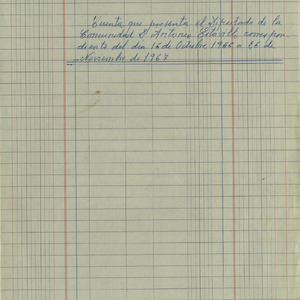 Cuenta que presenta el Apoderado de la
Comunidad D Antonio Estévez, correspon-
diente del dia 16 de Octubre 1966 a 26 de
Noviembre de 1967